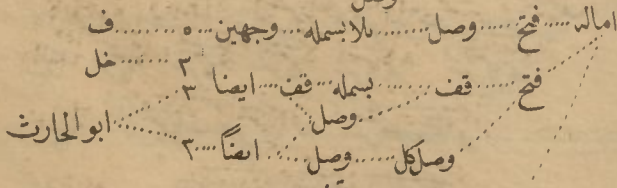 وصل
اماله فتح وصل بلا بسمله وجهين ٥ ف
٢ خل
فتح قف بسمله قف ايضا ٣
وصل ابو الحارث
وصل كل وصل ايضاً ٣